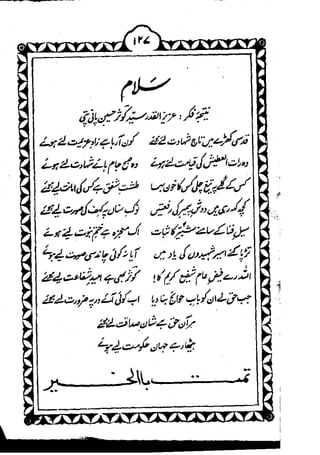 ۱۲۷
سلام
نتیجۂ فکر: عزیز القدر سید کوثر حسین پانی پتی
قدسی کھڑے ہیں تاج شہادت لئے ہوئے
کون آ رہا ہے زاد عزیمت لئے ہوئے
وہ رات العطش کی قیامت لئے ہوئے
وہ صبح جام ہائے شہادت لئے ہوئے
کس کے گلے پہ تیغ چلی کس کا خوں بہا
طشت شفق ہے کس کی امانت لئے ہوئے
کچھ کہہ رہی ہیں دوش پیمبر کی رفعتیں
نوک سناں پہ کہف کی صورت لئے ہوئے
سیل فنا کے سامنے شبیر کا ثبات
اک معجزہ ہے ختم نبوت لئے ہوئے
تڑپا گئے اسیر شہیدوں کی یاد میں
آیا نہ کوئی چاند سی صورت لئے ہوئے
اللہ رے فیض عام شفیع کریم کا
کوثر بھی ہے امید شفاعت لئے ہوئے
جب حق نے ان کو باب حوائج بنا دیا
اب کوئی آئے در پہ ضرورت لئے ہوئے
ہر آن حق ہے شان صداقت لئے ہوئے
بیٹھا رہے جہان حکومت لئے ہوئے
تمت بالخیر